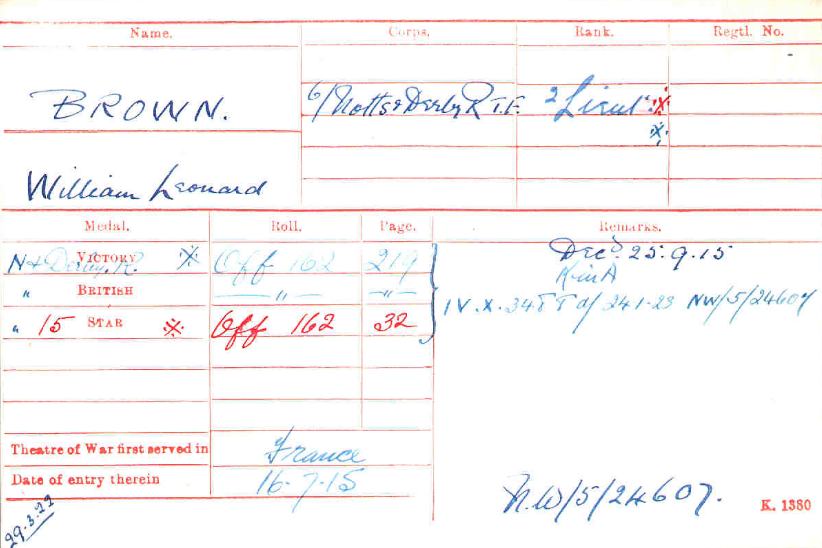 Name. Corps. Rank. Regtl. No.
BROWN. 6/Notts & Derby R T.F. 2 Lieut.
William Leonard
Medal. Roll. Page. Remarks.
VICTORY N & Derby. R. Off 162 219 Decd. 25.9.15
K in A
" BRITISH —"— —"— IV.X. 34 d/ 24.1.23 NW/5/24607
" 15 STAR Off 162 32
Theatre of War first served in France
Date of entry therein 16-7-15
29.3.22 N.W/5/24607. K. 1380